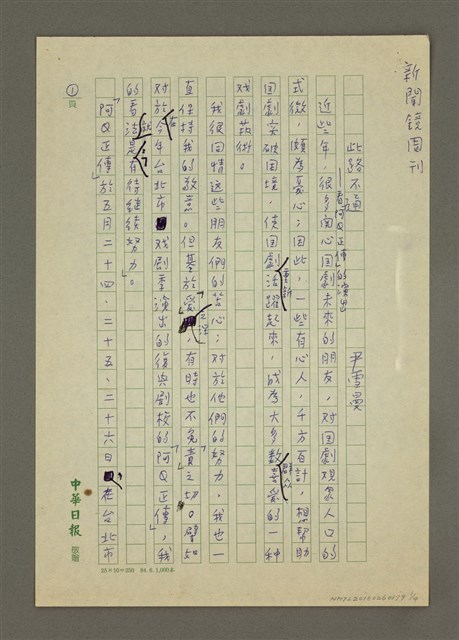 新聞鏡周刊
此路不通
——看「阿Q正傳」的演出
尹雪曼
近些年，很多關心国劇未來的朋友，対囯劇观眾人口的
式微，頗為憂心；因此，一些有心人，千方百計，想幫助
囯劇突破困境，使囯劇重新活躍起來，成為大多数群众喜爱的一种
戏劇芸術。
我很同情这些朋友們的苦心；对於他們的努力，我也一
直保持我的敬意。但基於「爱」之深，有時也不免「責」之切。譬如
对於今年台北市戏劇季演出的復兴劇校的「阿Q正傳」，我
的看法是有待継续努力。
「阿Q正傳」於五月二十四、二十五、二十六日，在台北市
1
頁
中華日報
版贈
25×10=250 84.6.1,000本